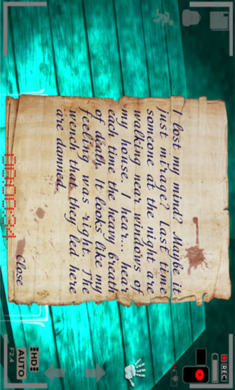 I lost my mind? Maybe it
just mirage? Last time
someone at the night are
walking near windows of
my house. I hear... hear
each time the hard breath
of death. It looks like
feeling was right. The
wench that they fed here
are damned.
close
REC
HD
AUTO
F2.4